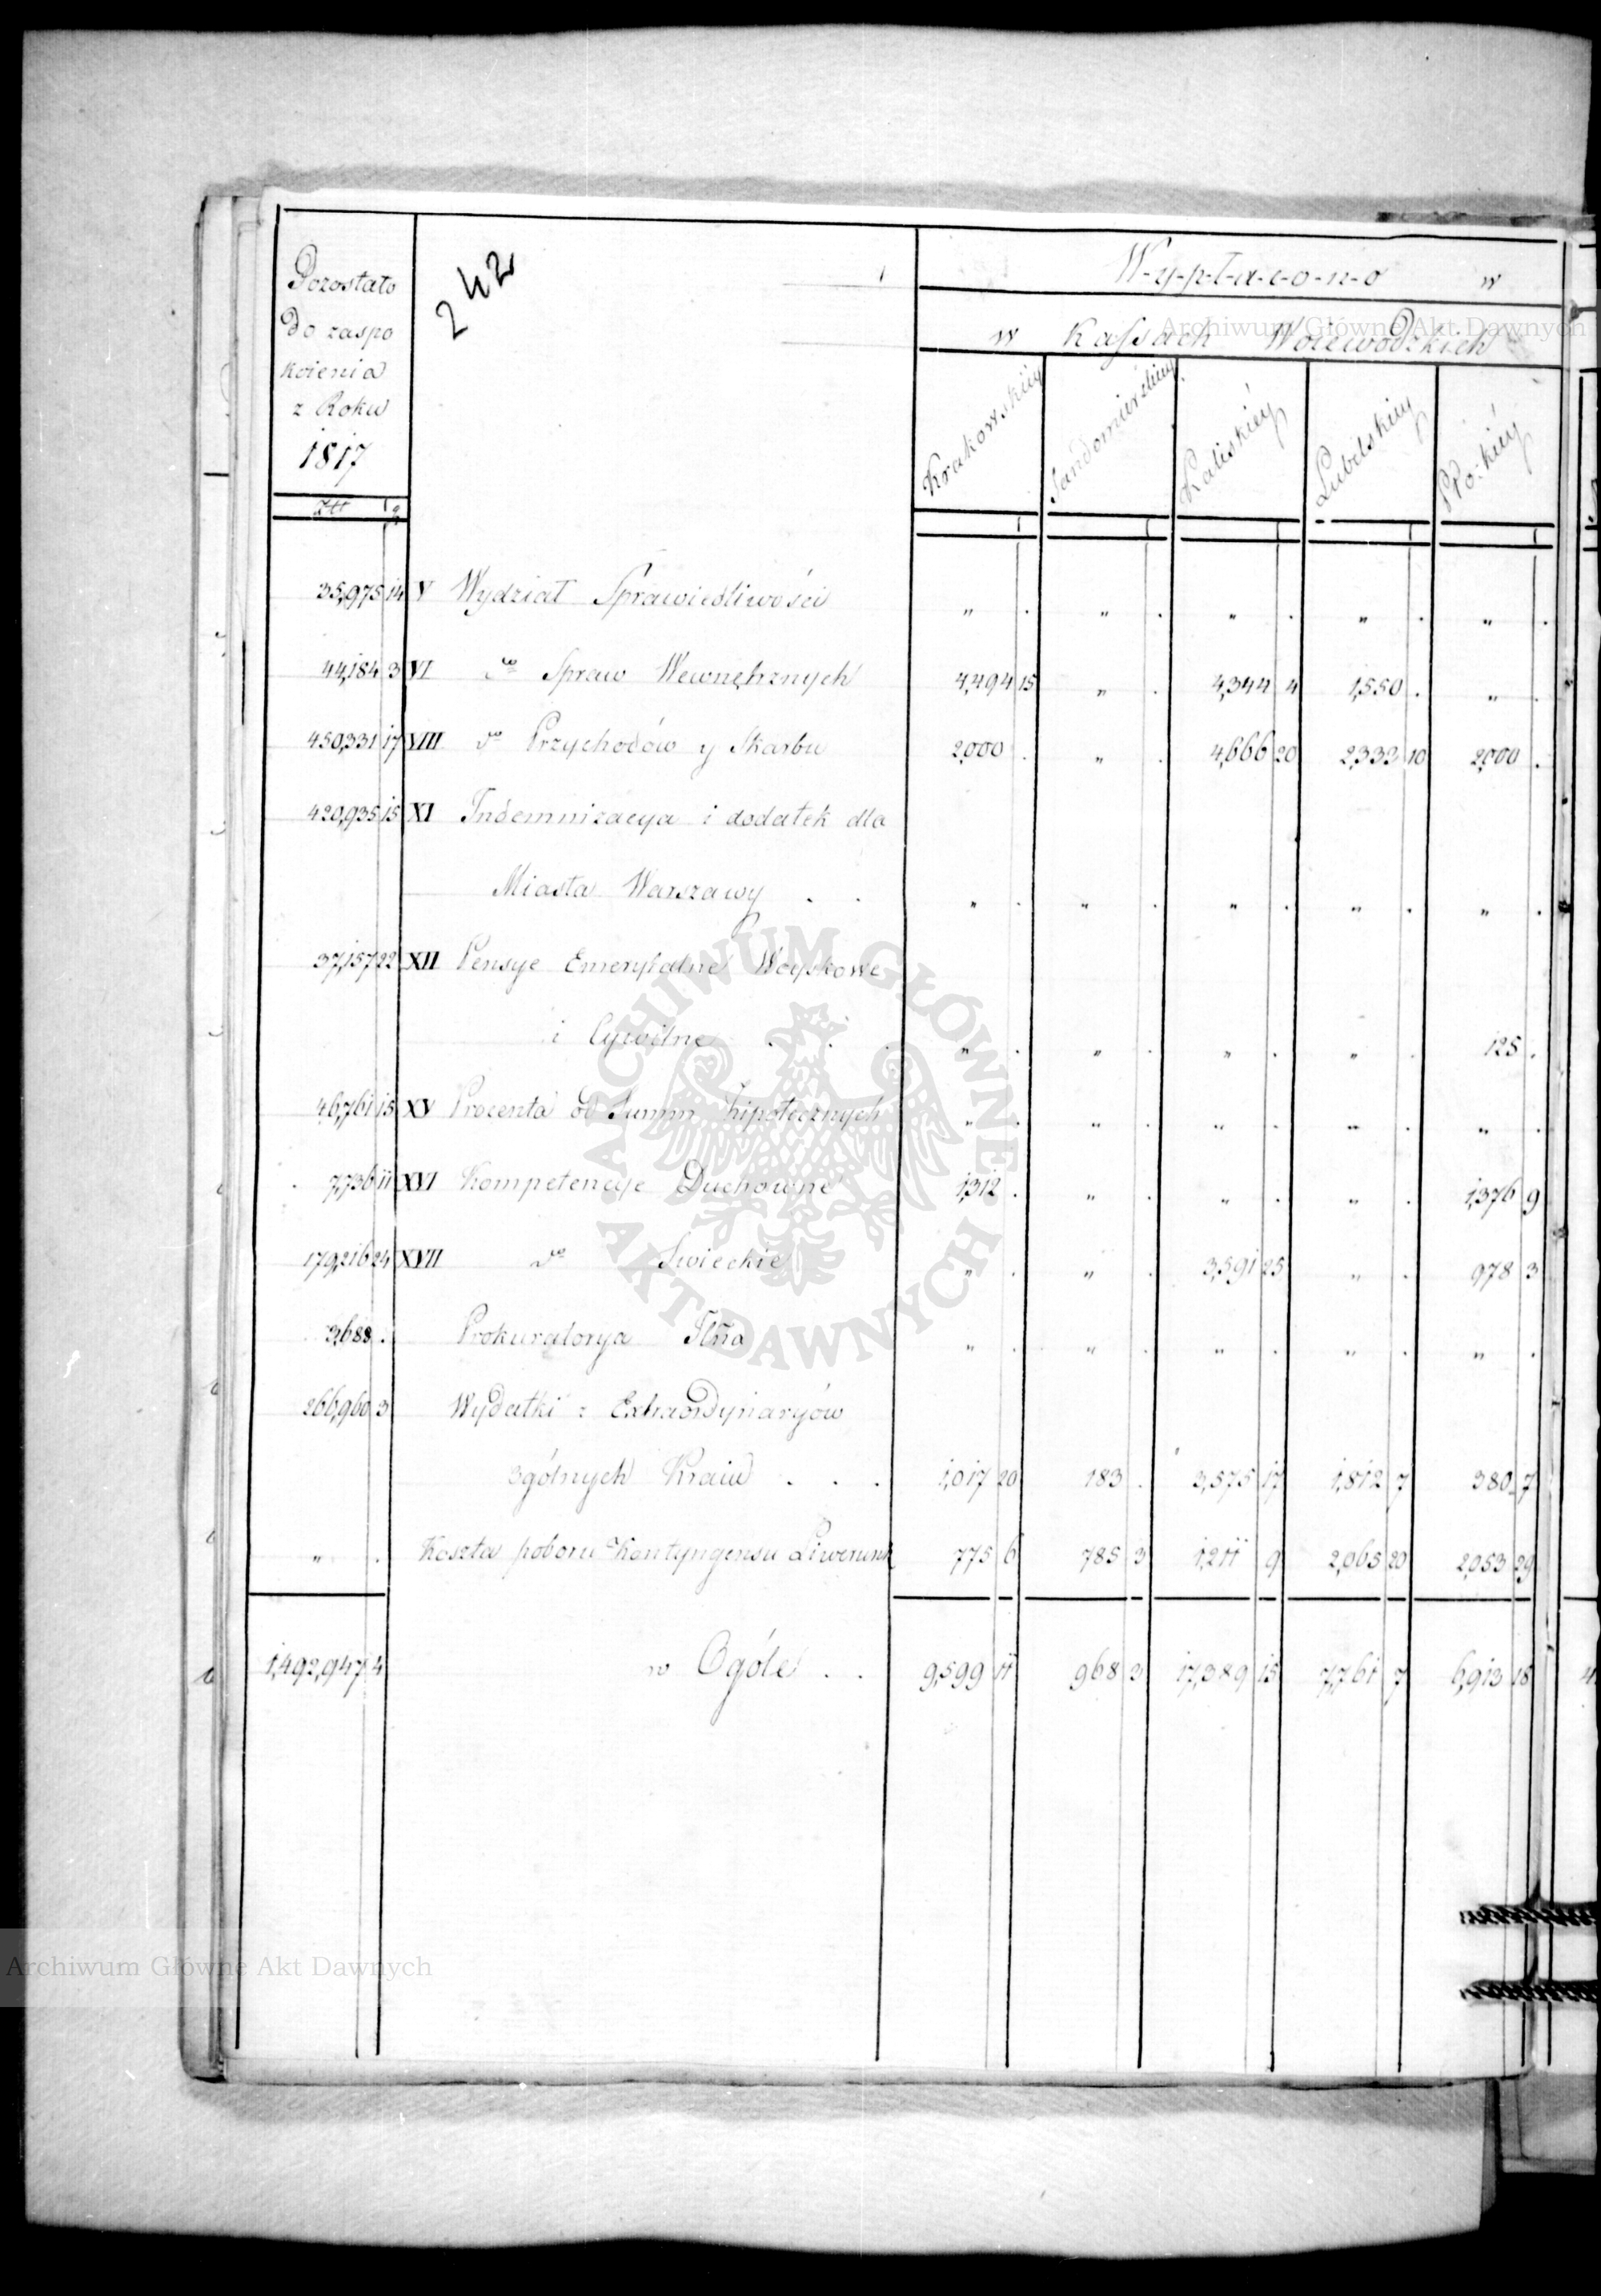 242
Pozostało
do zaspo
koienia
z Roku
1817
Złł g
W-y-p-ł-a-c-o-n-o w
w Kassach Woiewodzkich
Krakowskiey Sandomierskiey Kaliskiey Lubelskiey Płockiey
35,975 14 V Wydział Sprawiedliwości " . " . " . " . " .
44,184 3 VI do Spraw Wewnętrznych 4,494 15 " . 4,344 4 1,550 . " .
450,331 17 VIII do Przychodów y Skarbu 2,000 . " . 4,666 20 2,333 10 2,000 .
420,935 15 XI Indemnizacya i dodatek dla
Miasta Warszawy . . " . " . " . " . " .
37,157 22 XII Pensye Emerytalne Woyskowe
i Cywilne . . . " . " . " . " . 125 .
46,761 15 XV Procenta od Summ hipotecznych " . " . " . " . " .
7,736 11 XVI Kompetencye Duchowne 1,312 . " . " . " . 1,376 9
179,216 24 XVII do Swieckie " . " . 3,591 25 " . 978 3
3,688 . Prokuratorya " . " . " . " . " .
266,960 3 Wydatki z Extraordynaryów
ogólnych Kraiu . . . 1,017 20 183 . 3,575 17 1,812 7 380 7
" . Koszta poboru Kontyngensu Liwerunk 775 6 785 3 1,211 9 2,065 20 2,053 29
1,492,947 4 w Ogóle . . 9,599 11 968 3 17,389 15 7,761 7 6,913 18
Archiwum Główne Akt Dawnych
ARCHIWUM GŁÓWNE
AKT DAWNYCH
Archiwum Główne Akt Dawnych